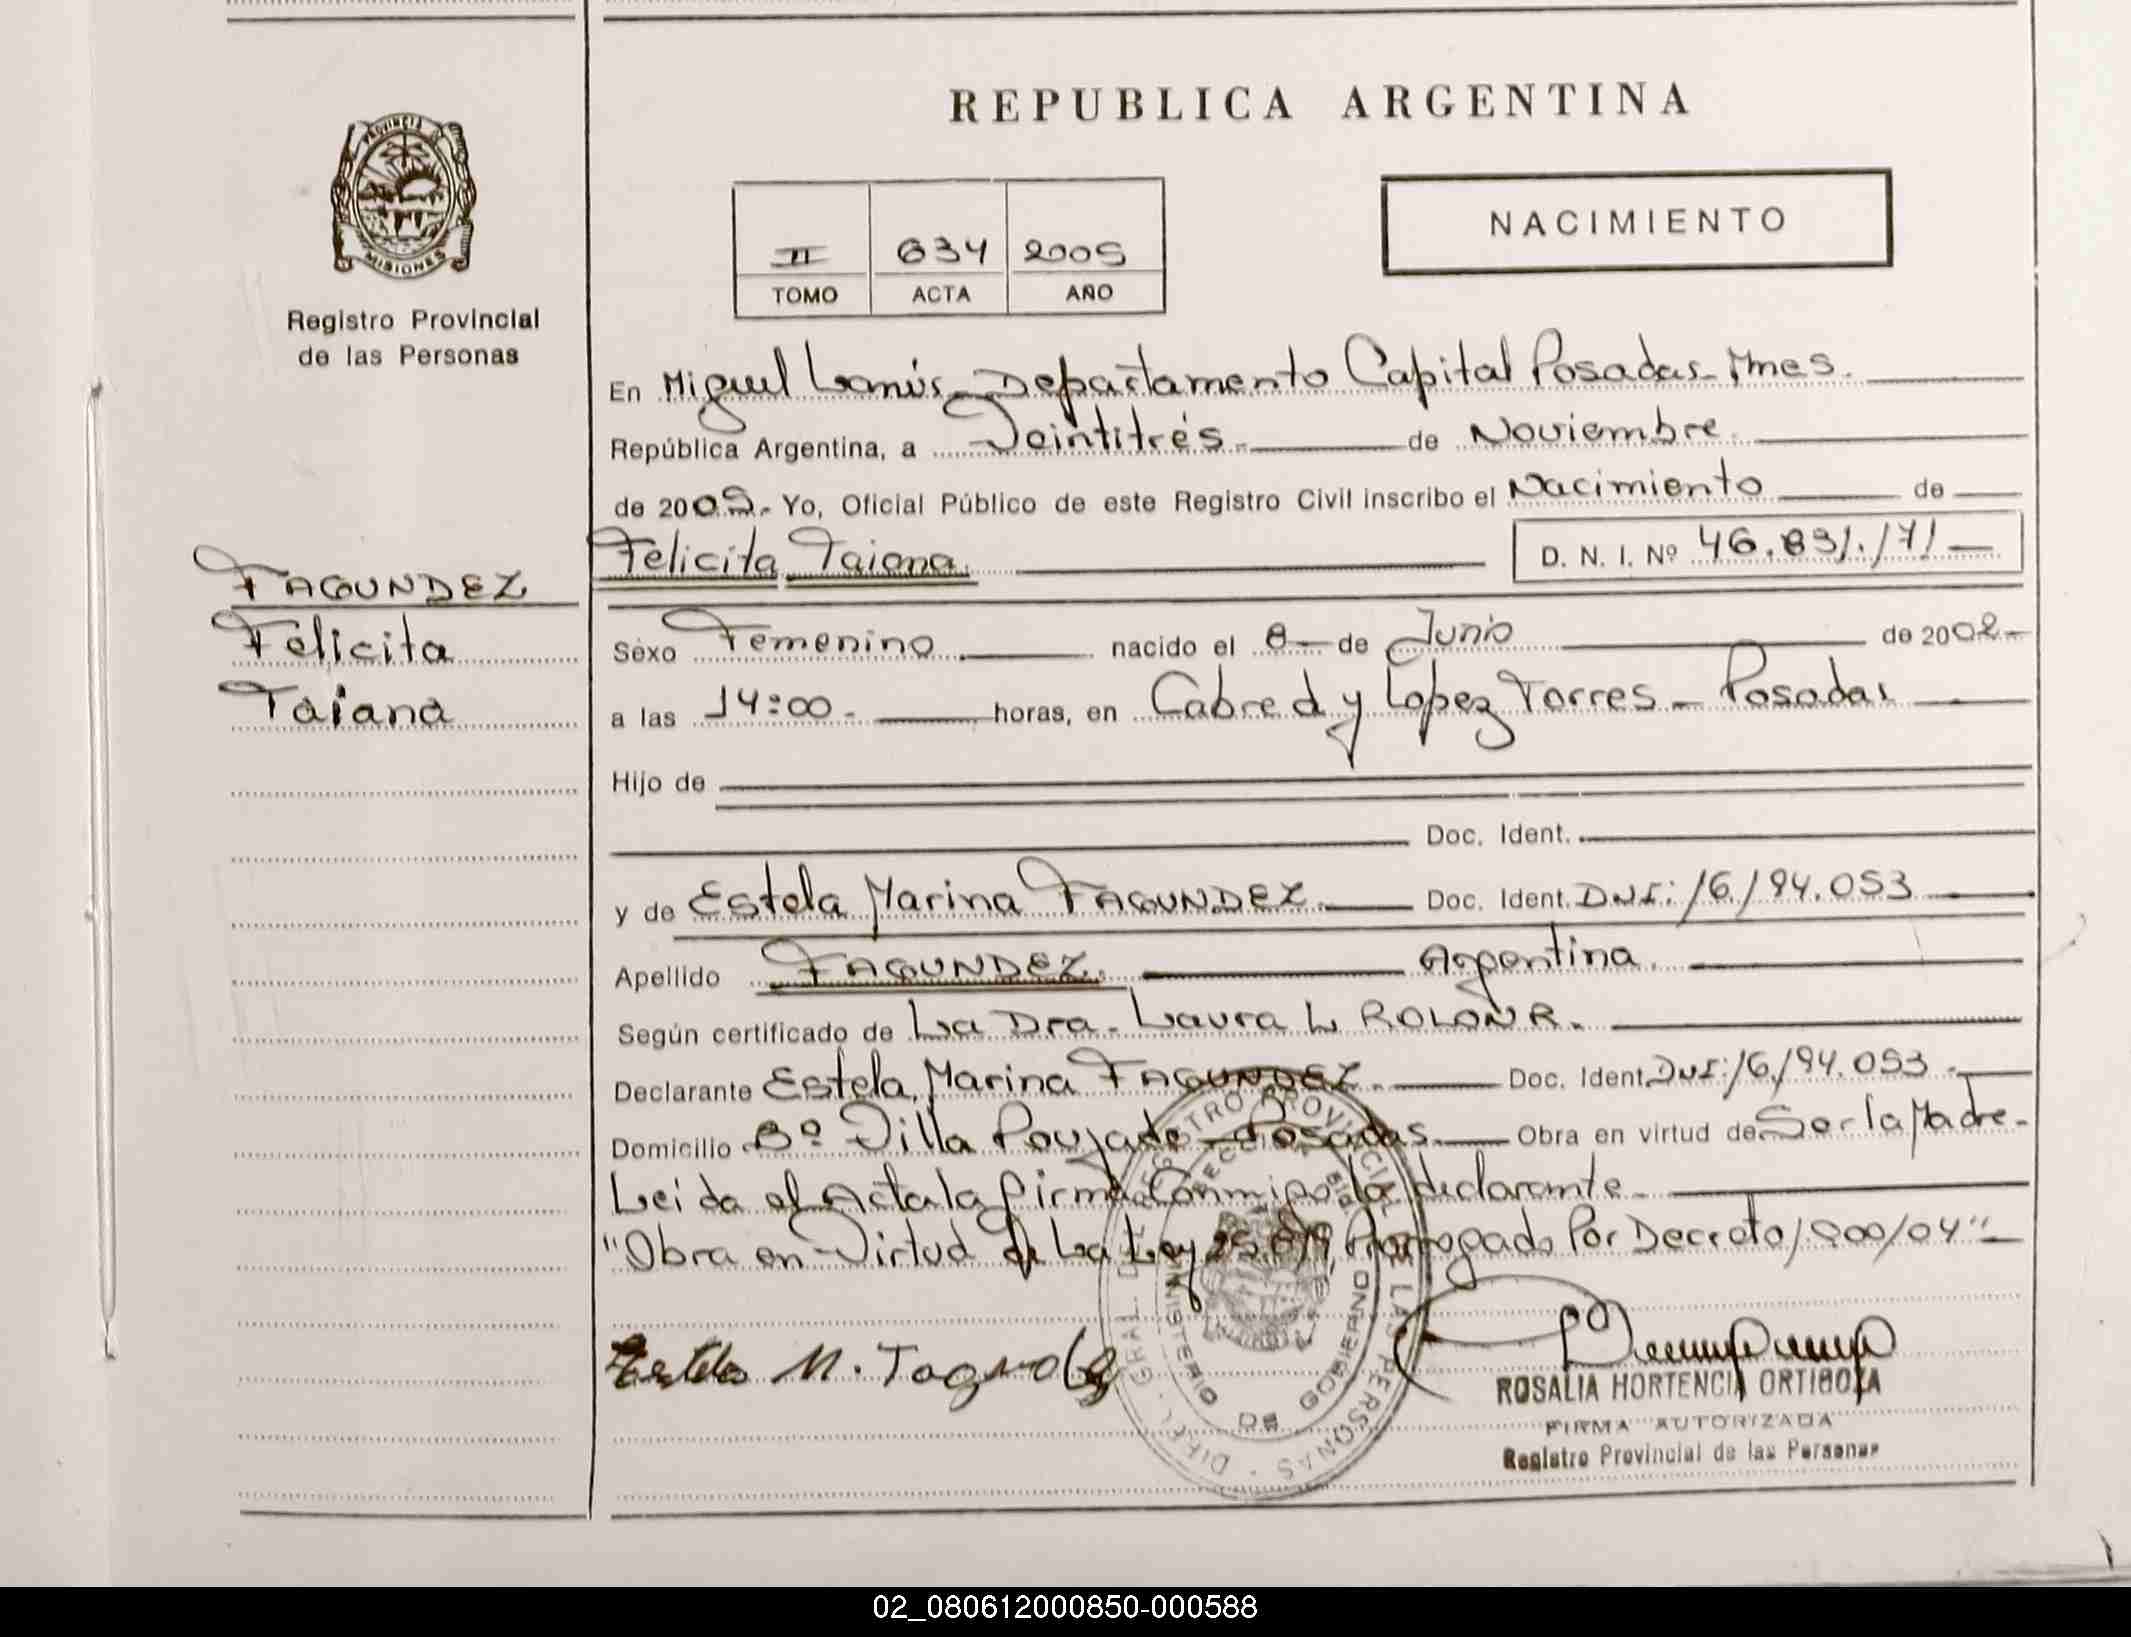 REPUBLICA ARGENTINA
PROVINCIA DE
MISIONES
Registro Provincial
de las Personas
NACIMIENTO
II 634 2005
TOMO ACTA AÑO
En Miguel Lanús - Departamento Capital Posadas - Mnes.
República Argentina, a Veintitrés de Noviembre
de 2005. Yo, Oficial Público de este Registro Civil inscribo el Nacimiento de
Felicita Taiana D. N. I. Nº 46.831.171
FAGUNDEZ
Felicita
Taiana
Sexo Femenino nacido el 8 de Junio de 2002
a las 14:00 horas, en Cabred y Lopez Torres - Posadas
Hijo de
Doc. Ident.
y de Estela Marina FAGUNDEZ. Doc. Ident. DNI: 16.194.053
Apellido FAGUNDEZ. Argentina.
Según certificado de La Dra. Laura L. ROLON R.
Declarante Estela Marina FAGUNDEZ. Doc. Ident. DNI: 16.194.053.
Domicilio Bº Villa Poujade - Posadas. Obra en virtud de Ser la Madre -
Leida el Acta la firma Conmigo la declarante
"Obra en Virtud de La Ley 25.819, Prorrogado Por Decreto 1900/04"
Estela M.
ROSALIA HORTENCIA ORTIGOZA
FIRMA AUTORIZADA
Registro Provincial de las Personas
DIREC. GRAL. DEL REGISTRO PROVINCIAL DE LAS PERSONAS
MINISTERIO DE GOBIERNO
02_080612000850-000588